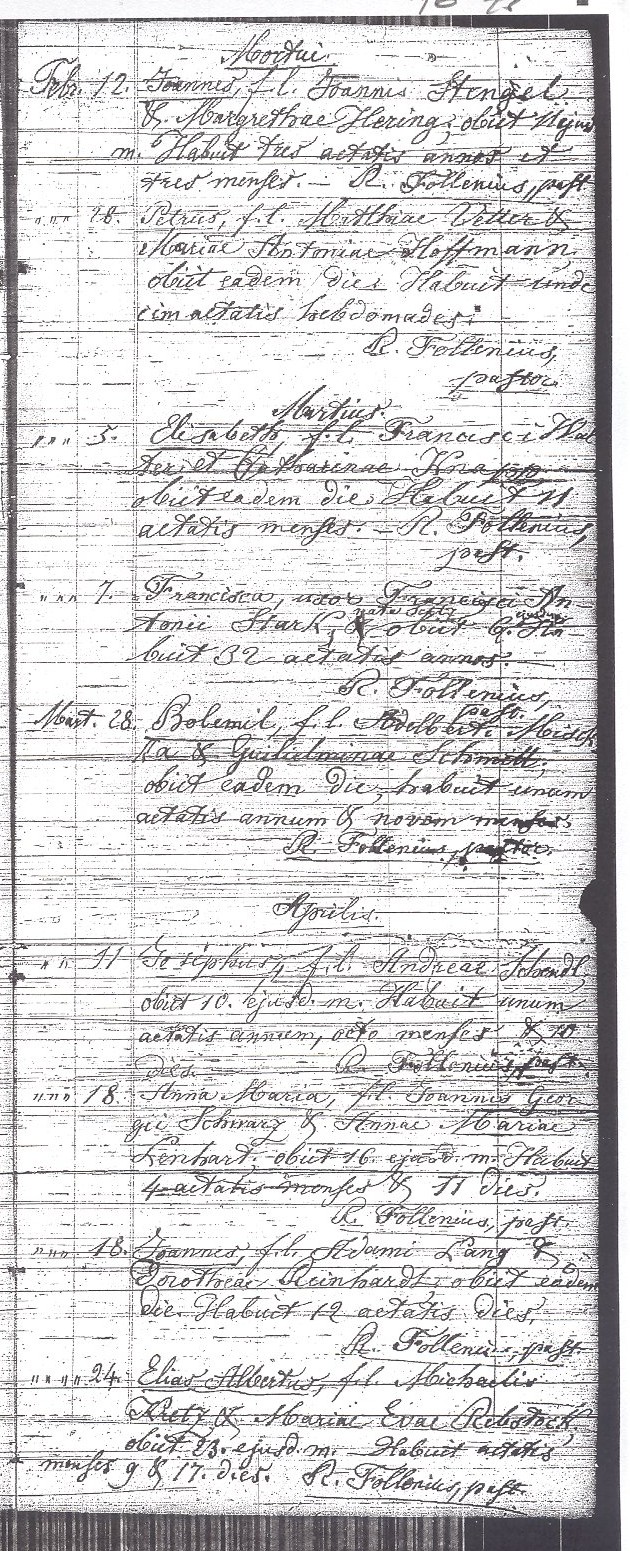 Mortui.
Febr. 12. Joannes, f. l. Joannis Stengel
& Margrethae Hering; obiit 11 ejus
m. Habuit tres aetatis annos et
tres menses. — R. Follenius, past.
" " " 28. Petrus, f. l. Matthiae Vetter &
Mariae Antoniae Hoffmann,
obiit eadem die. Habuit unde
cim aetatis hebdomades.
R. Follenius,
pastor.
Martius.
" " " 5. Elisabeth, f. l. Francisci Wal
ter et Catharinae Knapp,
obiit eadem die. Habuit 11
aetatis menses. — R. Follenius,
past.
" " " 7. Francisca, uxor Francisci An
tonii Stark, nata obiit 6. Ha
buit 32 aetatis annos.
R. Follenius,
past.
Mart. 28. Bolemil, f. l. Adelberti Misch
ka & Guilielminae Schmitt;
obiit eadem die, habuit unum
aetatis annum & novem menses.
R. Follenius, pastor.
Aprilis.
" " 11 Josephus, f. l. Andreae Schendl,
obiit 10. ejusd. m. Habuit unum
aetatis annum, octo menses & 10
dies. R. Follenius, past.
" " " 18. Anna Maria, f. l. Joannis Geor
gii Schwarz & Annae Mariae
Lenhart; obiit 16. ejusd. m. Habuit
4 aetatis menses & 11 dies.
R. Follenius, past.
" " " 18. Joannis, f. l. Adami Lang &
Dorotheae Reinhardt; obiit eadem
die. Habuit 12 aetatis dies.
R. Follenius, past.
" " " " 24. Elias Albertus, f. l. Michaelis
Kretz & Mariae Evae Rebstock,
obiit 23. ejusd. m. Habuit aetatis
menses 9 & 17. dies. R. Follenius, past.